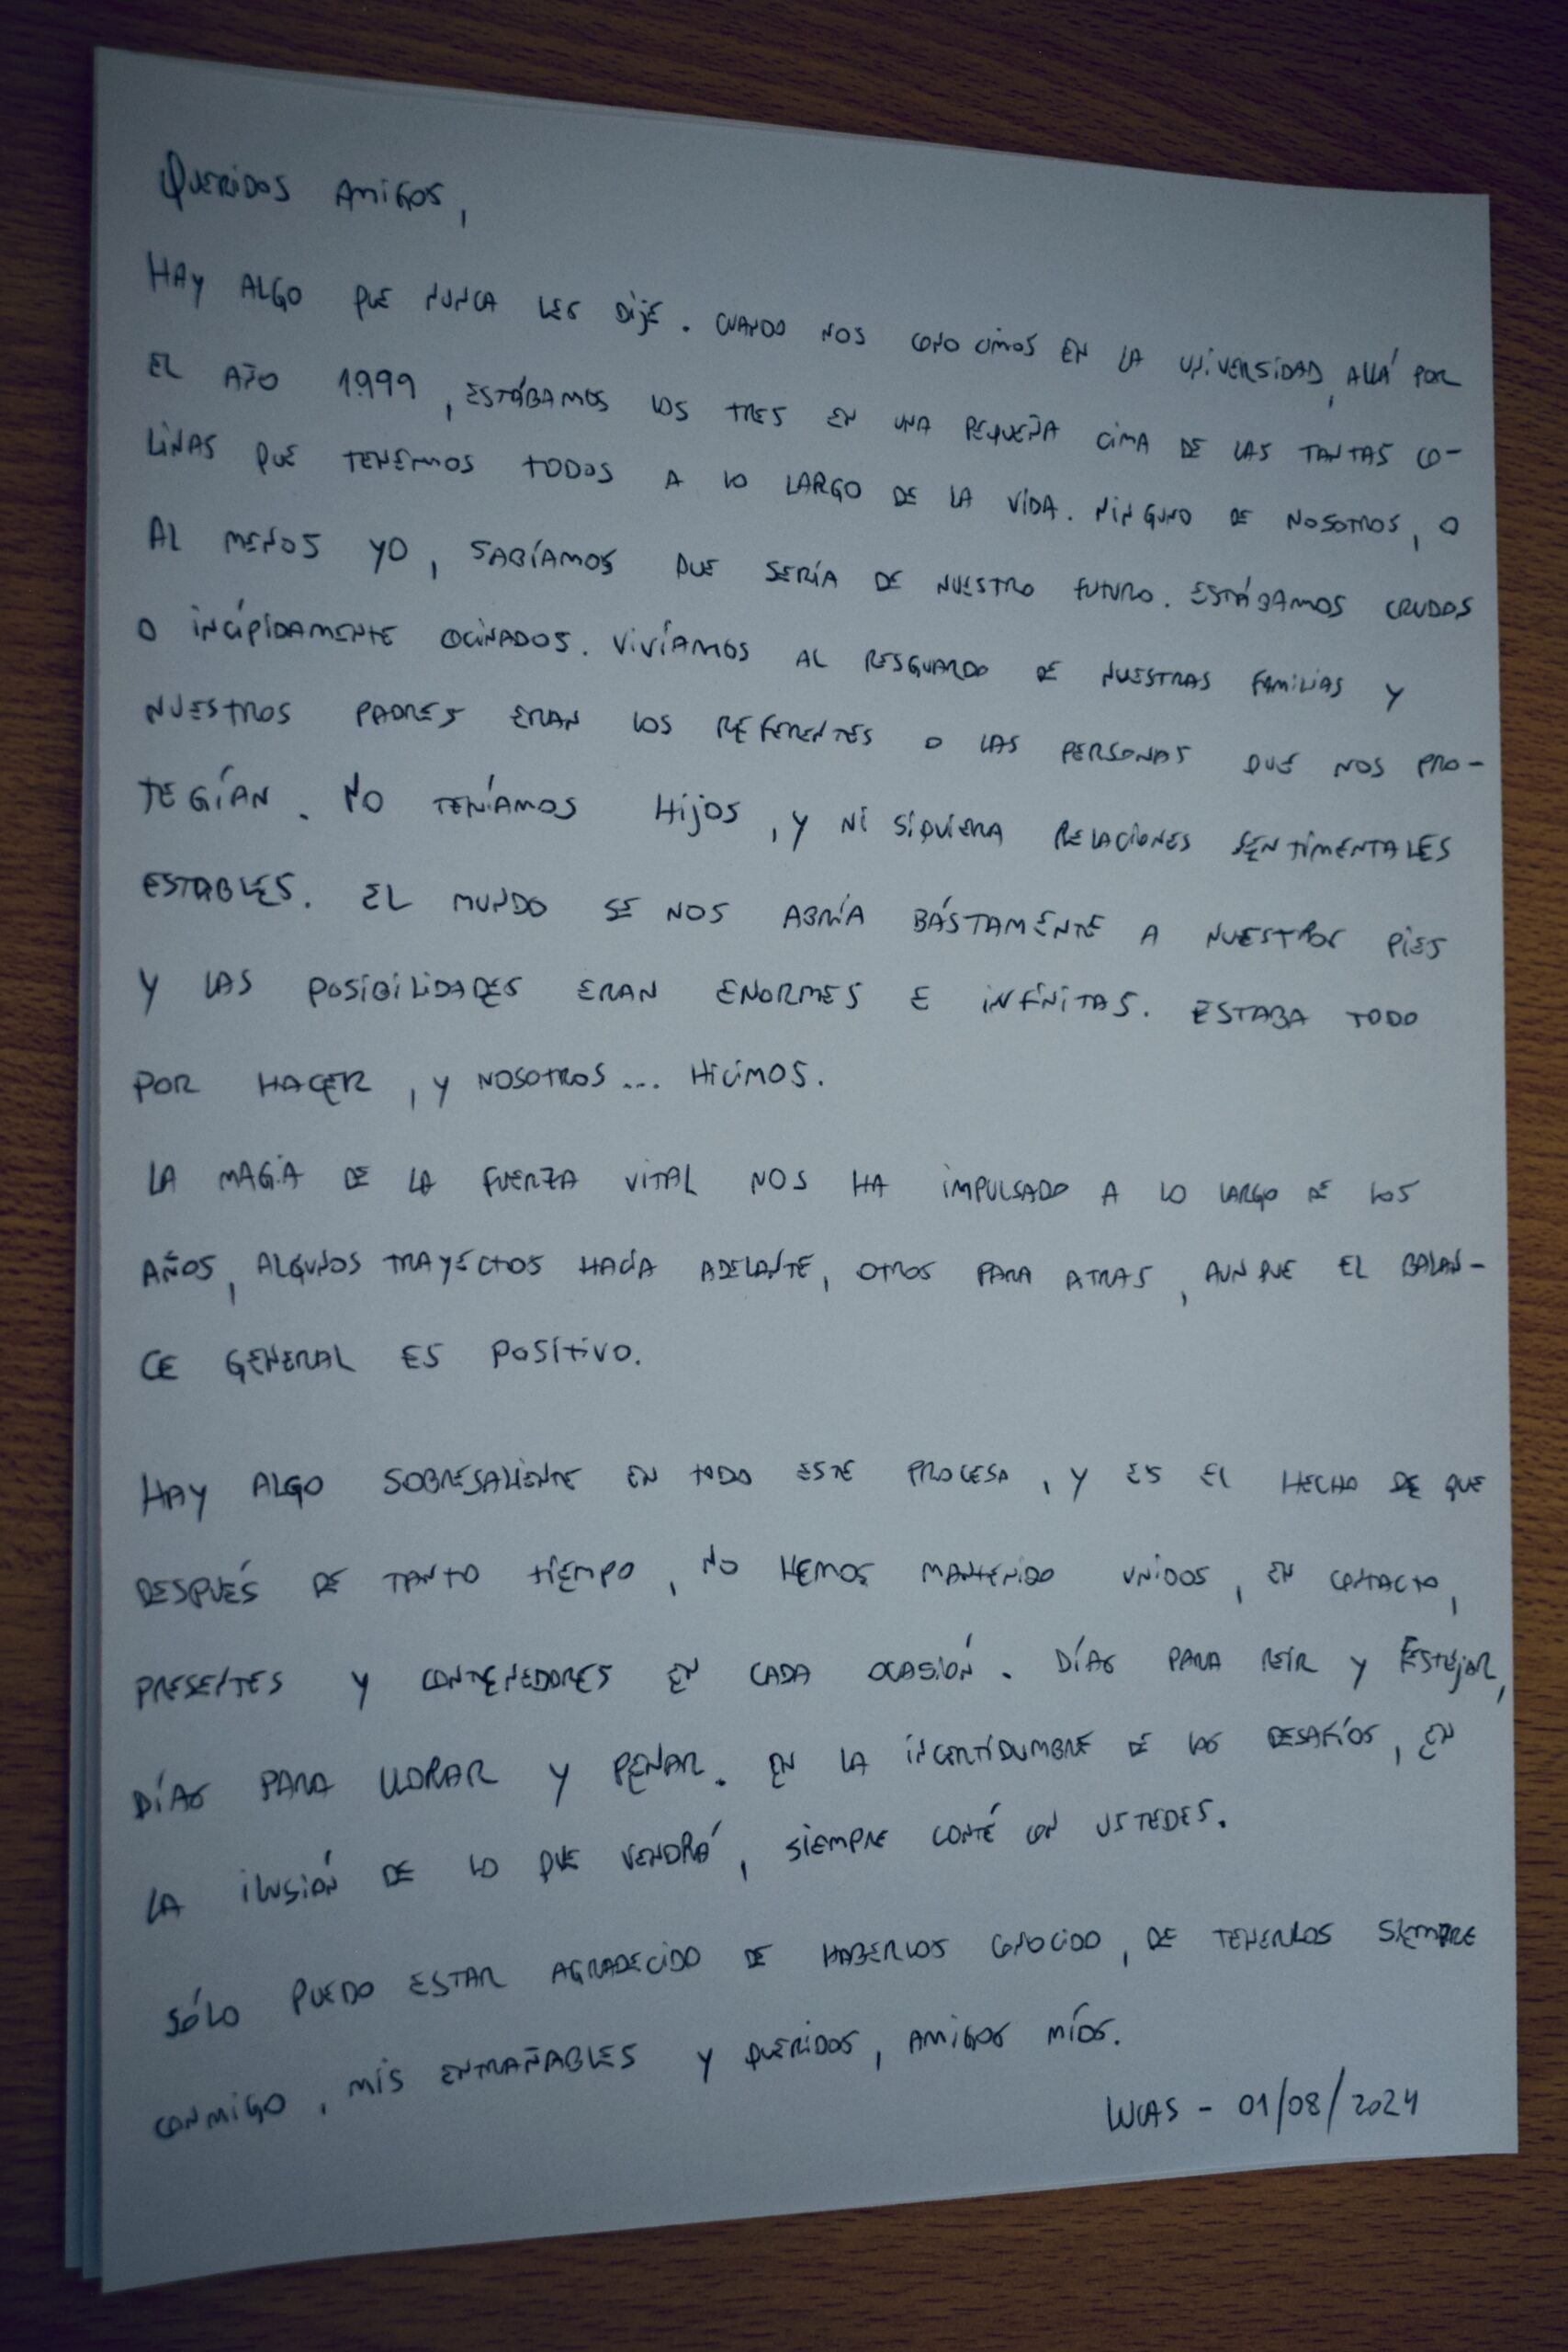 QUERIDOS AMIGOS,
HAY ALGO QUE NUNCA LES DIJE. CUANDO NOS CONOCIMOS EN LA UNIVERSIDAD, ALLÁ POR
EL AÑO 1999, ESTÁBAMOS LOS TRES EN UNA PEQUEÑA CIMA DE LAS TANTAS CO-
LINAS QUE TENEMOS TODOS A LO LARGO DE LA VIDA. NINGUNO DE NOSOTROS, O
AL MENOS YO, SABÍAMOS QUE SERÍA DE NUESTRO FUTURO. ESTÁBAMOS CRUDOS
O INCÍPIDAMENTE COCINADOS. VIVÍAMOS AL RESGUARDO DE NUESTRAS FAMILIAS Y
NUESTROS PADRES ERAN LOS REFERENTES O LAS PERSONAS QUE NOS PRO-
TEGÍAN. NO TENÍAMOS HIJOS, Y NI SIQUIERA RELACIONES SENTIMENTALES
ESTABLES. EL MUNDO SE NOS ABRÍA BÁSTAMENTE A NUESTROS PIES
Y LAS POSIBILIDADES ERAN ENORMES E INFINITAS. ESTABA TODO
POR HACER, Y NOSOTROS... HICIMOS.
LA MAGIA DE LA FUERZA VITAL NOS HA IMPULSADO A LO LARGO DE LOS
AÑOS, ALGUNOS TRAYECTOS HACIA ADELANTE, OTROS PARA ATRAS, AUNQUE EL BALAN-
CE GENERAL ES POSITIVO.
HAY ALGO SOBRESALIENTE EN TODO ESTE PROCESA, Y ES EL HECHO DE QUE
DESPUÉS DE TANTO TIEMPO, NO HEMOS MANTENIDO UNIDOS, EN CONTACTO,
PRESENTES Y CONTENEDORES EN CADA OCASIÓN. DÍAS PARA REÍR Y FESTEJAR,
DÍAS PARA LLORAR Y PENAR. EN LA INCERTIDUMBRE DE LOS DESAFÍOS, EN
LA ILUSIÓN DE LO QUE VENDRÁ, SIEMPRE CONTÉ CON USTEDES.
SÓLO PUEDO ESTAR AGRADECIDO DE HABERLOS CONOCIDO, DE TENERLOS SIEMPRE
CONMIGO, MIS ENTRAÑABLES Y QUERIDOS, AMIGOS MÍOS.
LUCAS - 01/08/2024